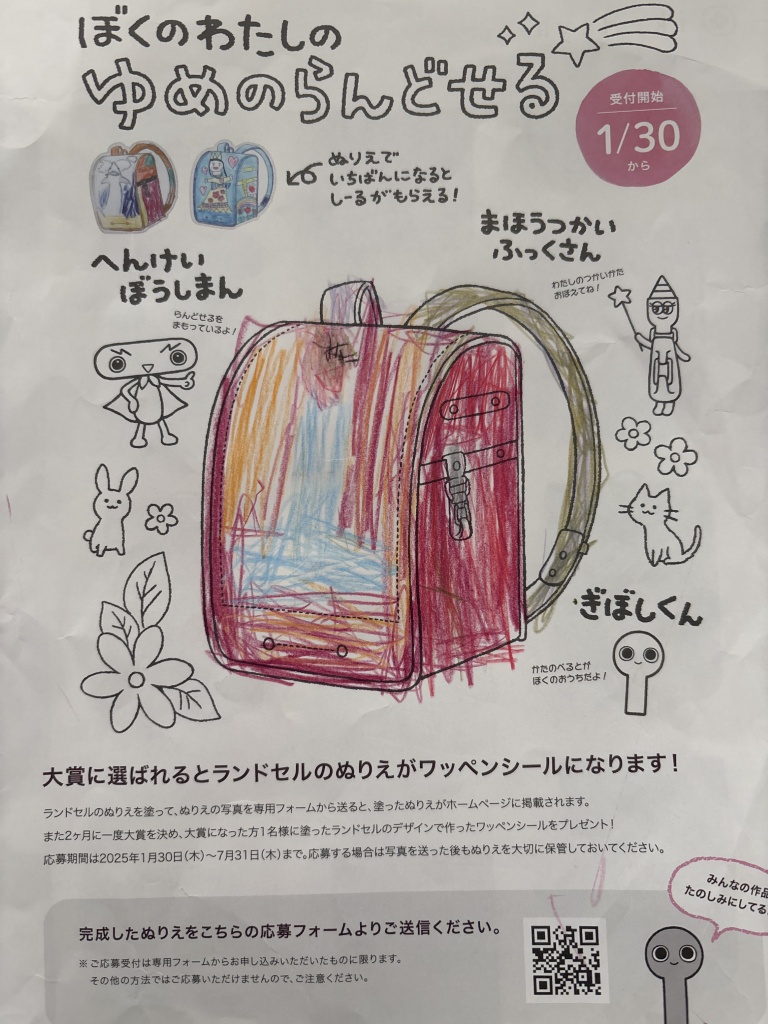 ぼくのわたしの
ゆめのらんどせる
受付開始
1/30
から
ぬりえで
いちばんになると
しーるがもらえる！
まほうつかい
ふっくさん
わたしのつかいかた
おぼえてね！
へんけい
ぼうしまん
らんどせるを
まもっているよ！
ぎぼしくん
かたのべるとが
ぼくのおうちだよ！
大賞に選ばれるとランドセルのぬりえがワッペンシールになります！
ランドセルのぬりえを塗って、ぬりえの写真を専用フォームから送ると、塗ったぬりえがホームページに掲載されます。
また2ヶ月に一度大賞を決め、大賞になった方1名様に塗ったランドセルのデザインで作ったワッペンシールをプレゼント！
応募期間は2025年1月30日(木)〜7月31日(木)まで。応募する場合は写真を送った後もぬりえを大切に保管しておいてください。
みんなの作品
たのしみにしてる
完成したぬりえをこちらの応募フォームよりご送信ください。
※ご応募受付は専用フォームからお申し込みいただいたものに限ります。
その他の方法ではご応募いただけませんので、ご注意ください。